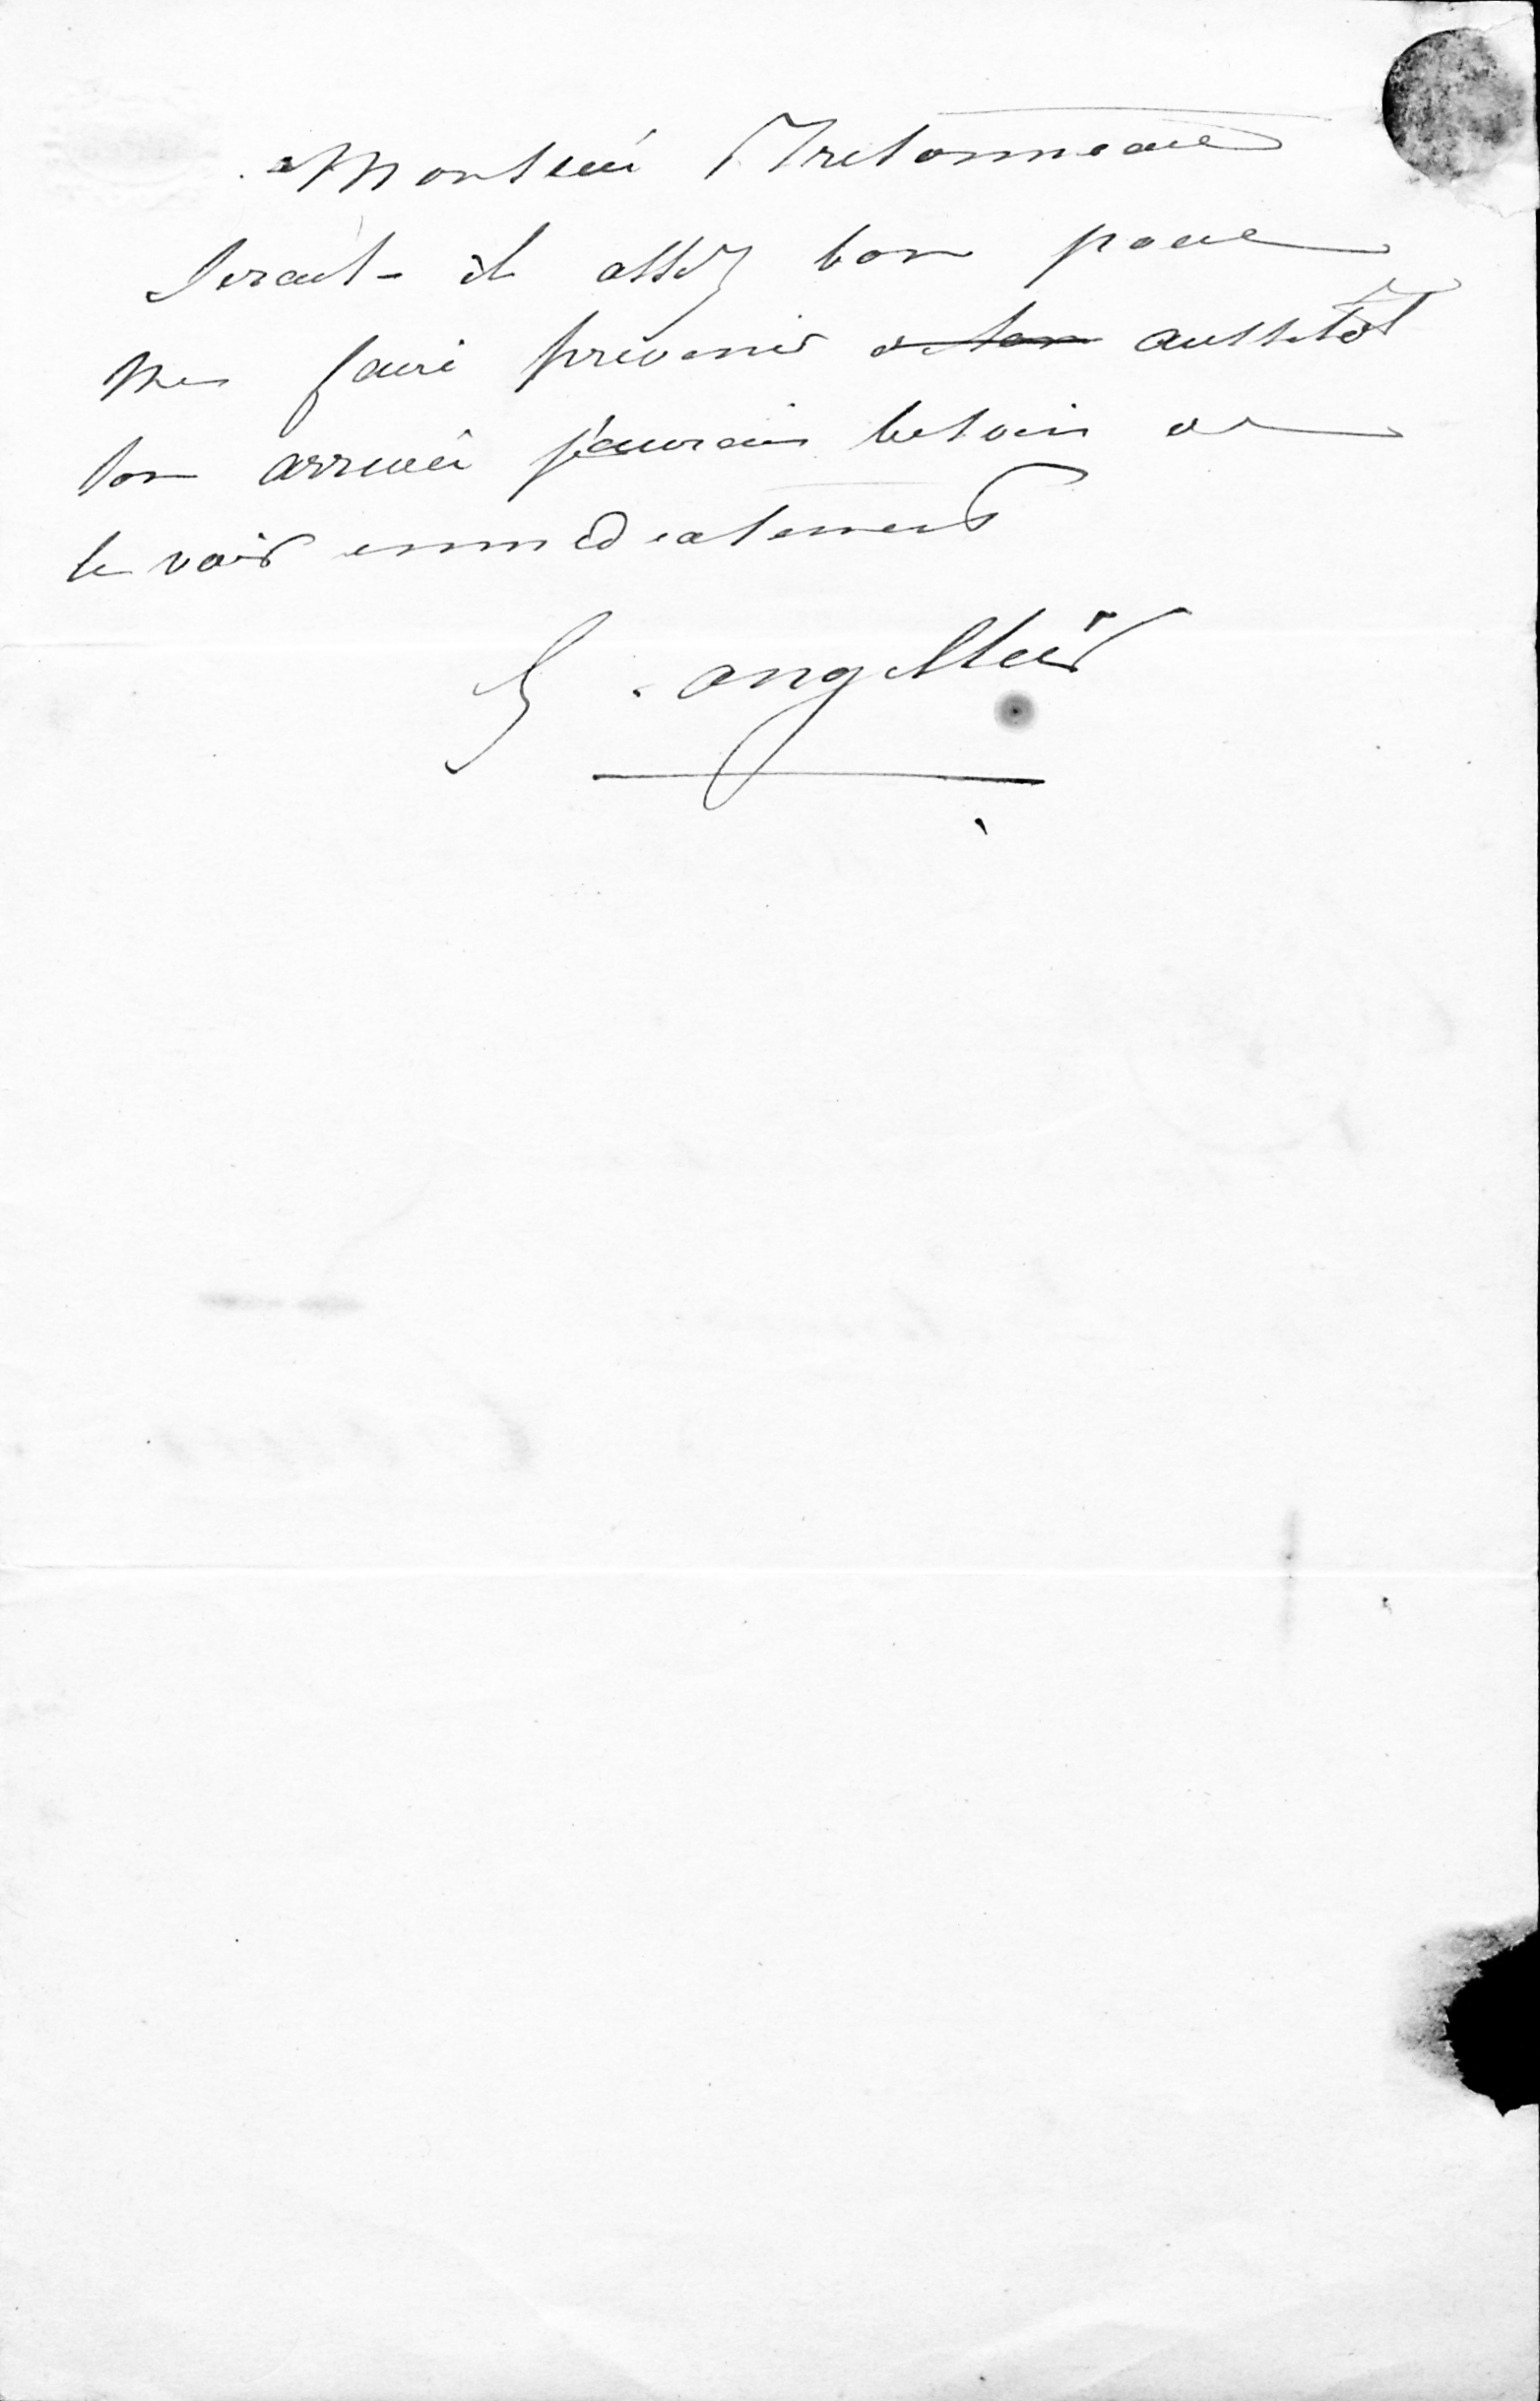 Monsieur Bretonneau
serait-il assez bon pour
me faire prévenir de son aussitôt
son arrivée j'aurais besoin de
le voir immédiatement
G. angellier